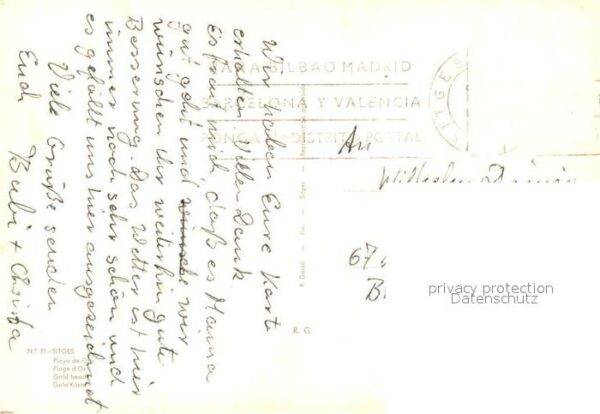 Wir haben Eure Karte
erhalten. Vielen Dank.
Es freut mich, daß es Mama
gut geht und wünsche wir
wünschen ihr weiterhin gute
Besserung. Das Wetter ist hier
immer noch sehr schön und
es gefällt uns hier ausgezeichnet
Viele Grüße senden
Euch Bubi + Christa
PARA BILBAO MADRID
BARCELONA Y VALENCIA
PONGA Nº DISTRITO POSTAL
SITGES
An
Wilhelm
67
B
privacy protection
Datenschutz
R. G.
N.º 91 - SITGES
Playa de
Plage d'Or
Gold beach
Gold Küste